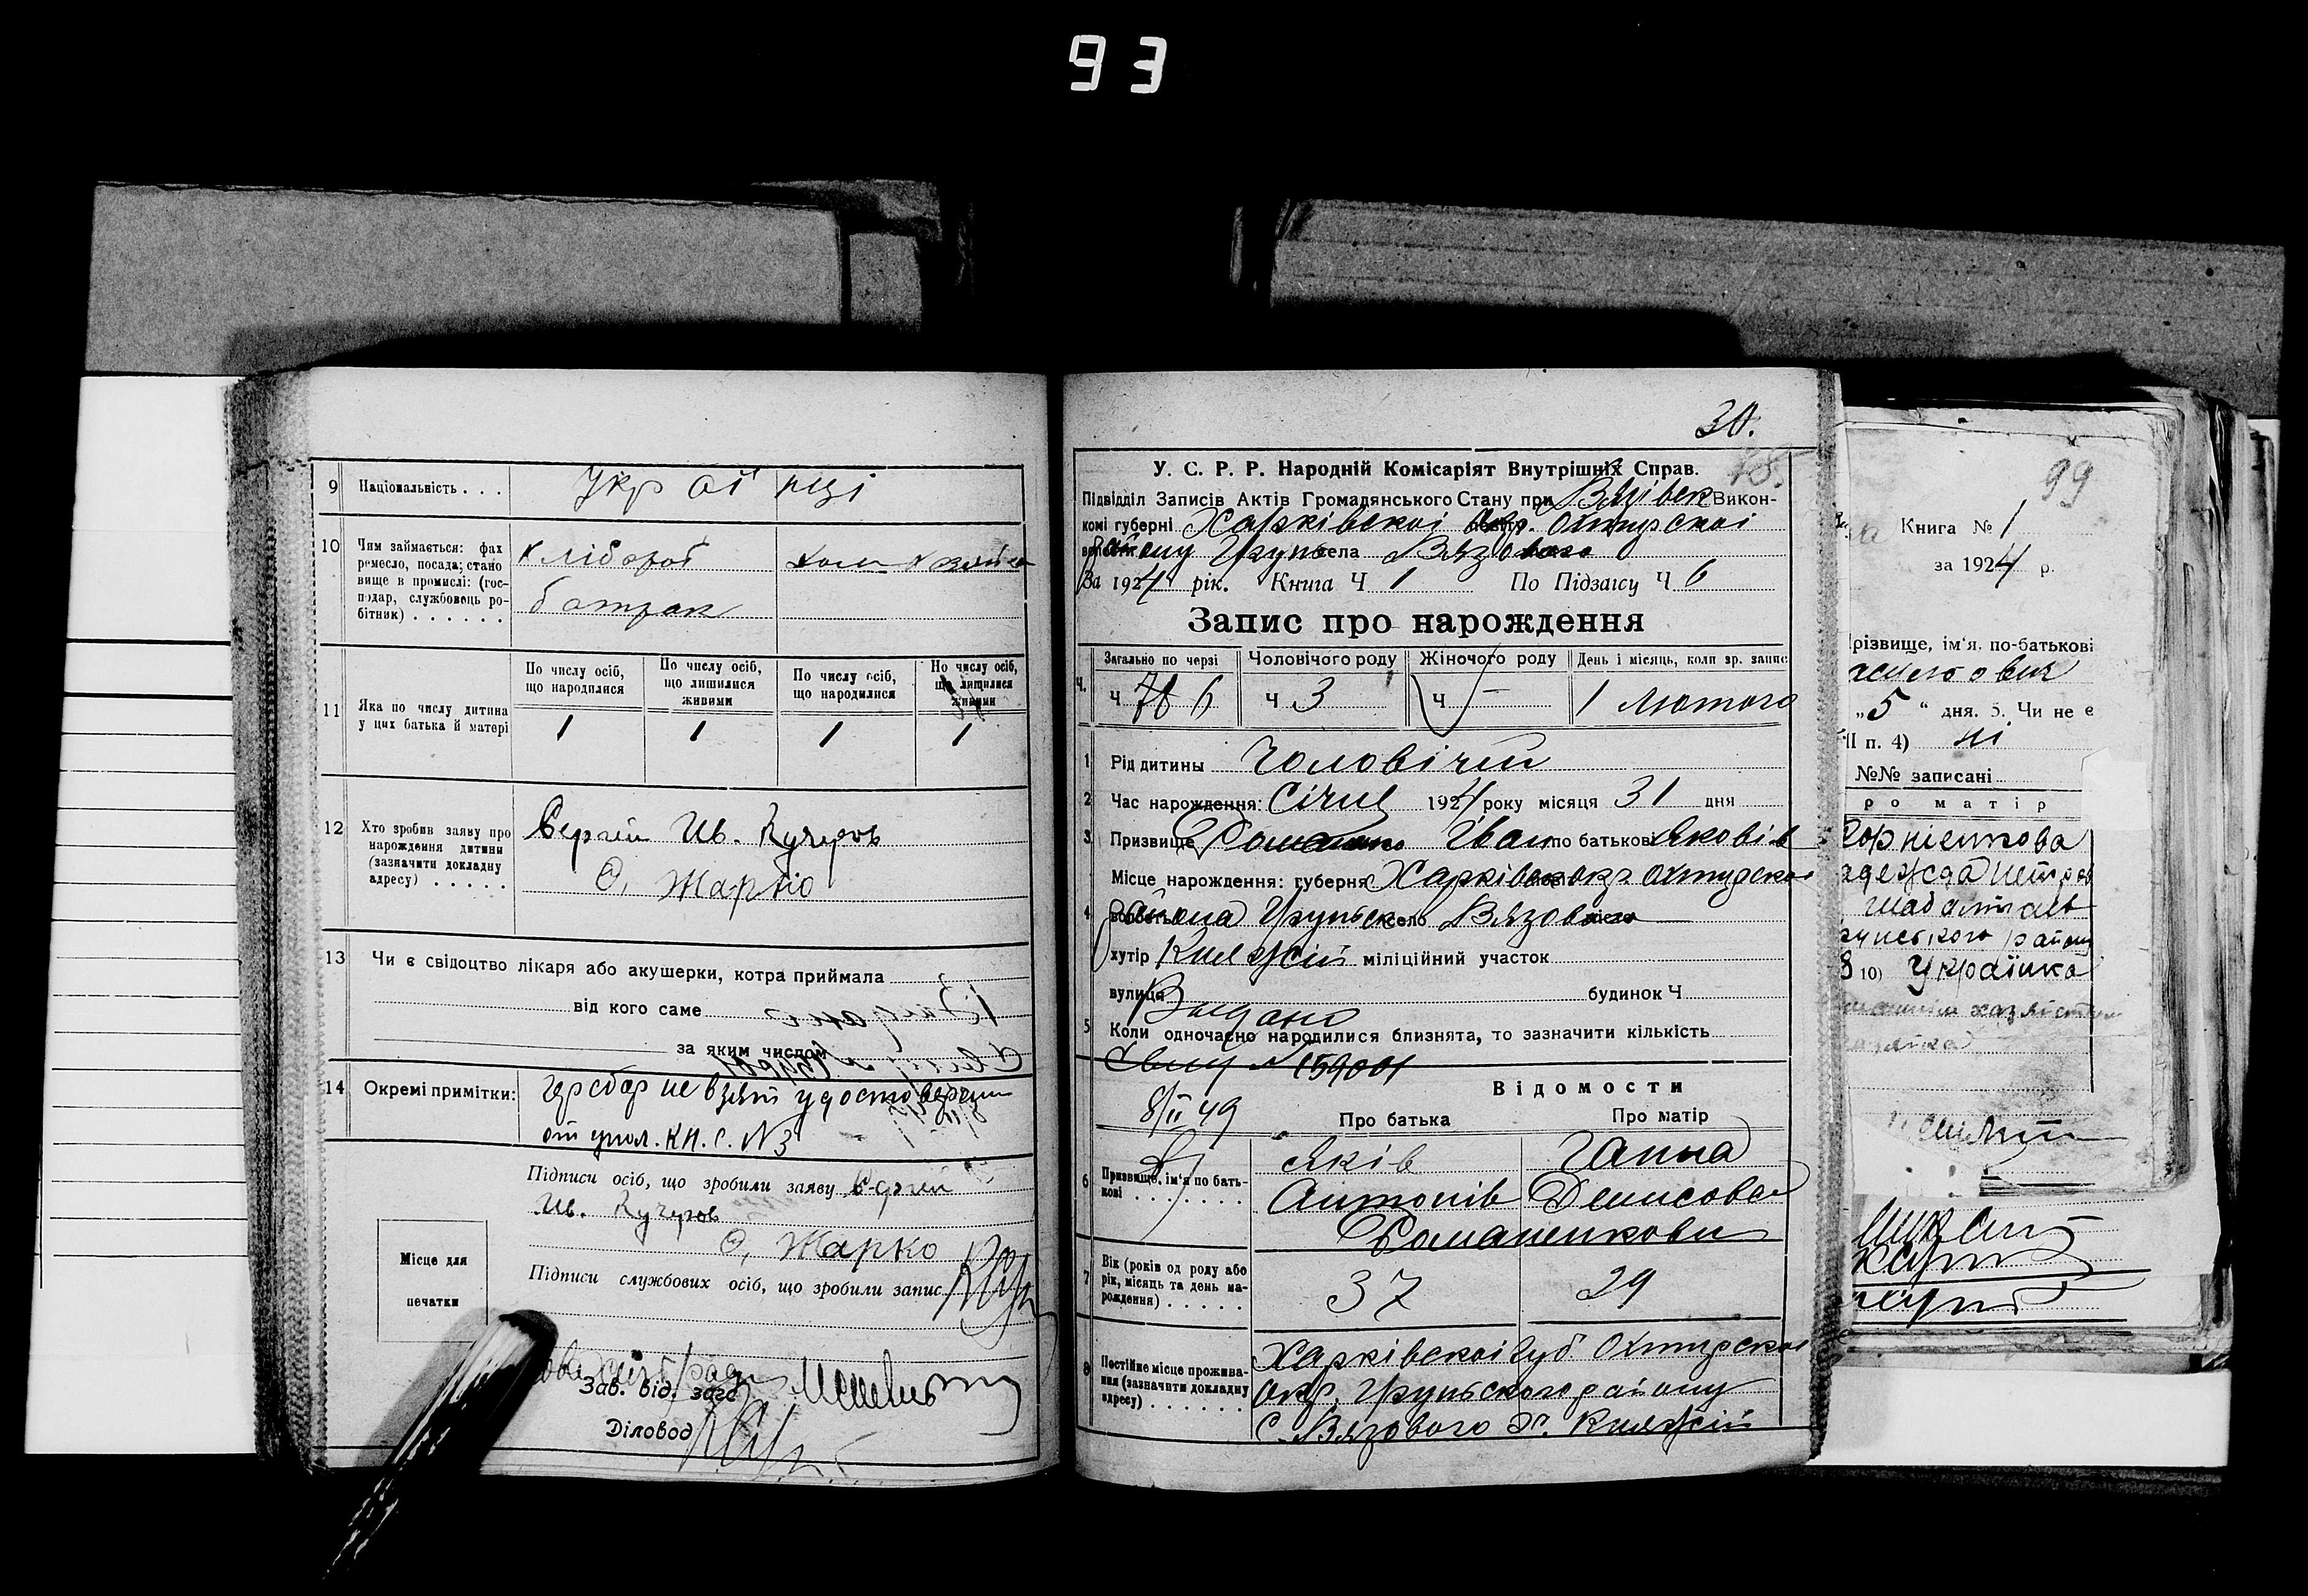 93
9 Національність . . .
Українці
10 Чим займається: фах
ремесло, посада; стано
вище в промислі: (гос-
подар, службовець ро-
бітник) . . . . . .
Хлібороб
батрак
11 Яка по числу дитина
у цих батька й матері
По числу осіб, що народилися
По числу осіб, що лишилися живими
По числу осіб, що народилися
По числу осіб, що лишилися живими
1 1 1 1
12 Хто зробив заяву про
нарождення дитини
(зазначити докладну
адресу) . . . . .
Сергій Ив. Кучеров
Ѳ, Жарко
13 Чи є свідоцтво лікаря або акушерки, котра приймала
від кого саме
за яким числом
14 Окремі примітки:
гербсбор не взят удостоверение
от упол. К.Н.С. №3
Підписи осіб, що зробили заяву Сергій
Ив. Кучеров
Ѳ, Жарко
Підписи службових осіб, що зробили запис
Місце для
печатки
Зав. від. загс
Діловод
30.
У. С. Р. Р. Народній Комісаріят Внутрішніх Справ.
Підвідділ Записів Актів Громадянського Стану при Вязівск Викон-
комі губерні Харківскоі окр. Охтирскоі
району Грунь села Вязового
За 1924 рік. Книга Ч 1 По Підзагсу Ч 6
Запис про нарождення
Загально по черзі Чоловічого роду Жіночого роду День і місяць, коли зр. запис
Ч. Ч 6 Ч 3 Ч — 1 Лютого
1 Рід дитины Чоловічий
2 Час нарождення: Січня 1924 року місяця 31 дня
3 Призвище Романенко Іван по батькові Яковів
4 Місце нарождення: губерня Харківск окр. Охтирскоі
района Груньск село Вязове
хутір Княжій міліційний участок
вулиця будинок Ч
Выдано
5 Коли одночасно народилися близнята, то зазначити кількість
Свид № 159001
8/II 49
Відомости
Про батька Про матір
6 Призвище, ім'я по бать-
кові . . . . . . .
Яків Ганна
Антонів Денисова
Романенкови
7 Вік (років од роду або
рік, місяць та день на-
рождення) . . . . .
37 29
8 Постійне місце прожива-
ння (зазначити докладну
адресу) . . . . . .
Харківскоі губ. Охтирскоі
окр. Груньского району
с. Вязового х. Княжій
99
Книга № 1
за 1924 р.
різвище, ім'я, по-батькові
„5“ дня. 5. Чи не є
II п. 4) ні
№№ записані
ро матір
Корнієтова
Україїнка